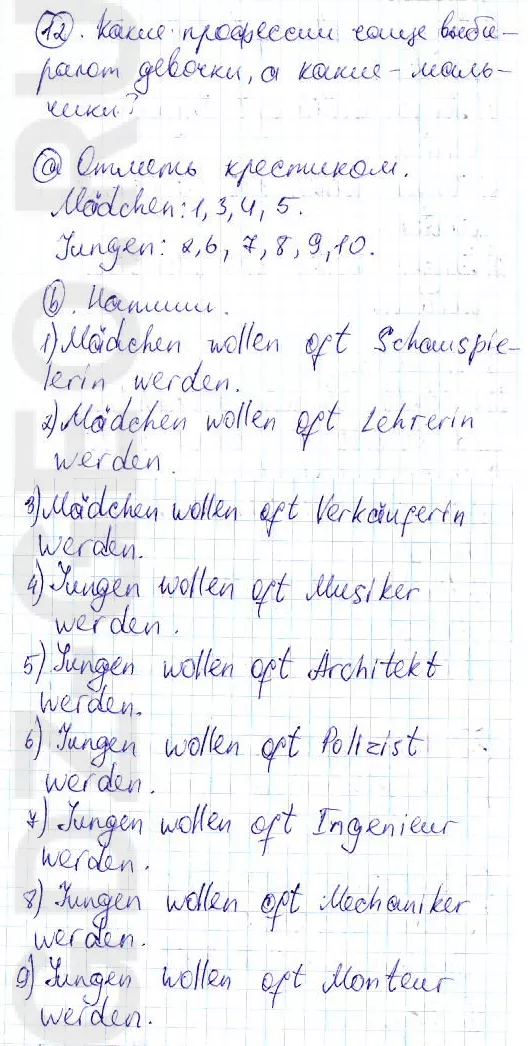 12. Какие профессии чаще выби-
рают девочки, а какие - маль-
чики?
a Отметь крестиком.
Mädchen: 1, 3, 4, 5.
Jungen: 2, 6, 7, 8, 9, 10.
b. Напиши.
1) Mädchen wollen oft Schauspie-
lerin werden.
2) Mädchen wollen oft Lehrerin
werden.
3) Mädchen wollen oft Verkäuferin
werden.
4) Jungen wollen oft Musiker
werden.
5) Jungen wollen oft Architekt
werden.
6) Jungen wollen oft Polizist
werden.
7) Jungen wollen oft Ingenieur
werden.
8) Jungen wollen oft Mechaniker
werden.
9) Jungen wollen oft Monteur
werden.